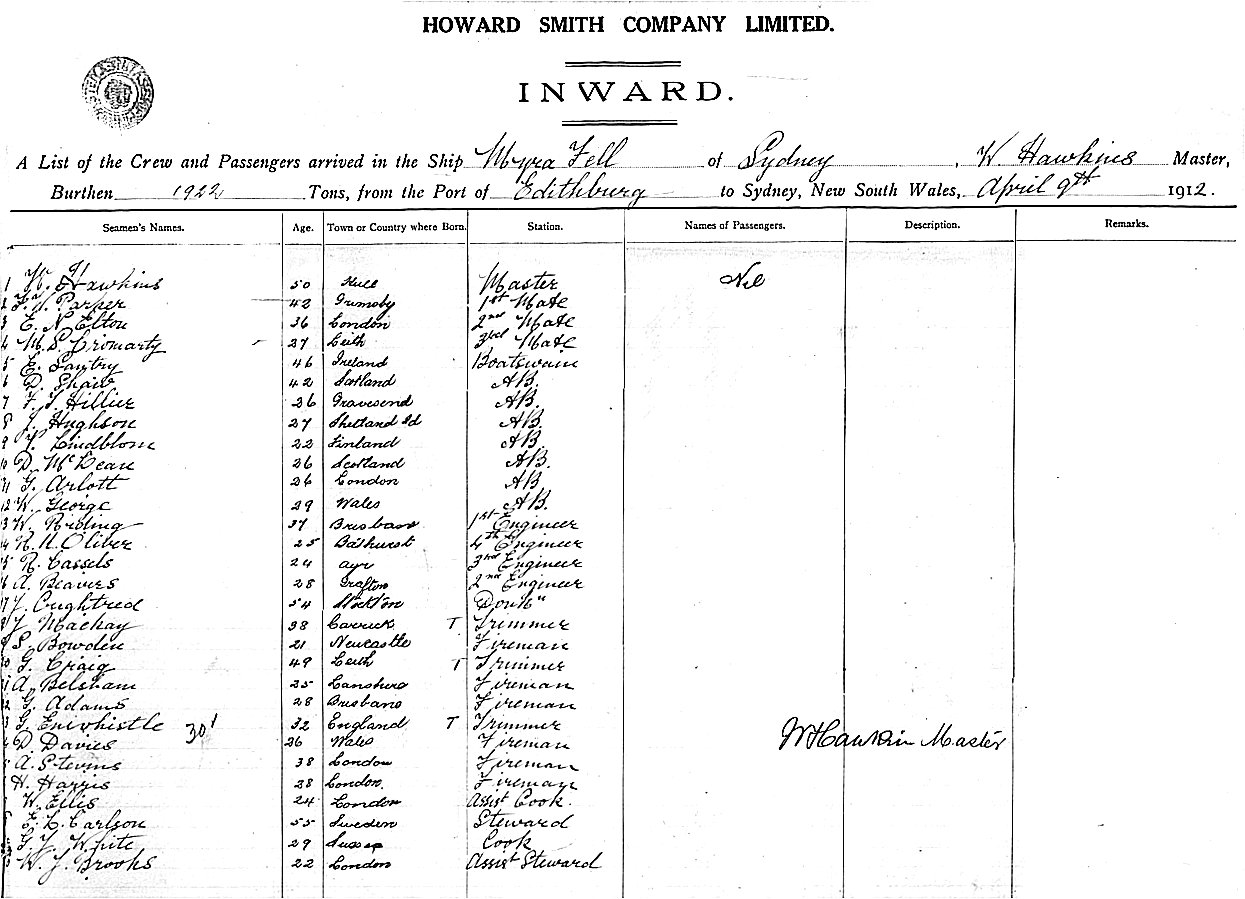 HOWARD SMITH COMPANY LIMITED.
INWARD.
A List of the Crew and Passengers arrived in the Ship Myra Fell of Sydney, W. Hawkins Master,
Burthen 1922 Tons, from the Port of Edithburg to Sydney, New South Wales, April 9th 1912.
Seamen's Names. Age. Town or Country where Born. Station. Names of Passengers. Description. Remarks.
1 W. Hawkins 50 Hull Master Nil
2 F. W. Parker 42 Grimsby 1st Mate
3 E. N. Elton 36 London 2nd Mate
4 M. S. Cromarty 27 Leith 3rd Mate
5 E. Santry 46 Ireland Boatswain
6 D. Shaw 42 Scotland AB.
7 F. T. Hillier 26 Gravesend AB.
8 J. Hughson 27 Shetland Id AB.
9 Lindblom 22 Finland AB.
10 D. McLean 26 Scotland AB.
11 G. Arlott 26 London AB.
12 W. George 29 Wales AB.
13 W. Riding 37 Brisbane 1st Engineer
14 R. N. Oliver 25 Bathurst 4th Engineer
15 R. Cassels 24 Ayr 3rd Engineer
16 A. Beavers 28 Grafton 2nd Engineer
17 J. Oughtred 54 Stockton Donk"
J. Mackay 38 Carrick T Trimmer
S. Bowden 21 Newcastle Fireman
G. Craig 49 Leith T Trimmer
A. Belsham 25 Fireman
G. Adams 28 Brisbane Fireman
G. Entwhistle 30' 32 England T Trimmer
D. Davies 26 Wales Fireman W Hawkin Master
A. Stevens 38 London Fireman
H. Harris 28 London. Fireman
W. Ellis 24 London Assist Cook.
E. L. Carlson 55 Sweden Steward
G. J. White 29 Sussex Cook
W. J. Brooks 22 London Assist Steward